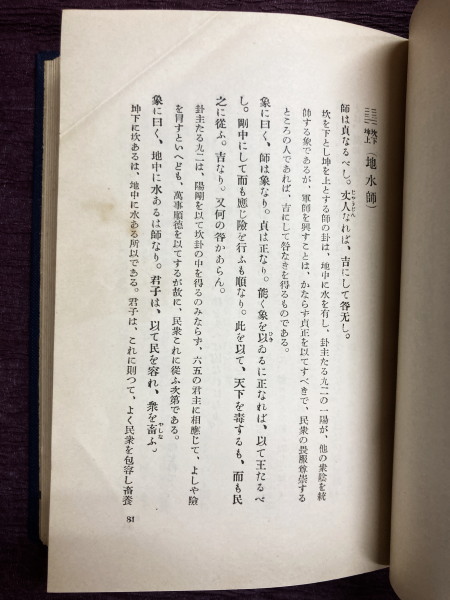 ☵坎下
☷坤上（地水師）
師は貞なるべし。丈人なれば、吉にして咎无し。
坎を下とし坤を上とする師の卦は、地中に水を有し、卦主たる九二の一陽が、他の衆陰を統
帥する象であるが、軍師を興すことは、かならず貞正を以てすべきで、民衆の畏服尊崇する
ところの人であれば、吉にして咎なきを得るものである。
彖に曰く、師は衆なり。貞は正なり。能く衆を以ゐるに正なれば、以て王たるべ
し。剛中にして而も應じ險を行ふも順なり。此を以て、天下を毒するも、而も民
之に從ふ。吉なり。又何の咎かあらん。
卦主たる九二は、陽剛を以て坎卦の中を得るのみならず、六五の君主に相應じて、よしや險
を冐すといへども、萬事順德を以てするが故に、民衆これに從ふ次第である。
象に曰く、地中に水あるは師なり。君子は、以て民を容れ、衆を畜ふ。
坤下に坎あるは、地中に水ある所以である。君子は、これに則つて、よく民衆を包容し畜養
81